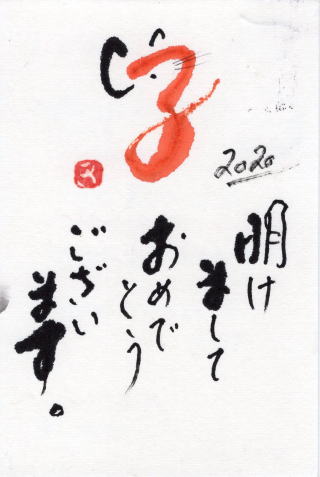 子
2020
明け
まして
おめで
とう
ございい
ます。